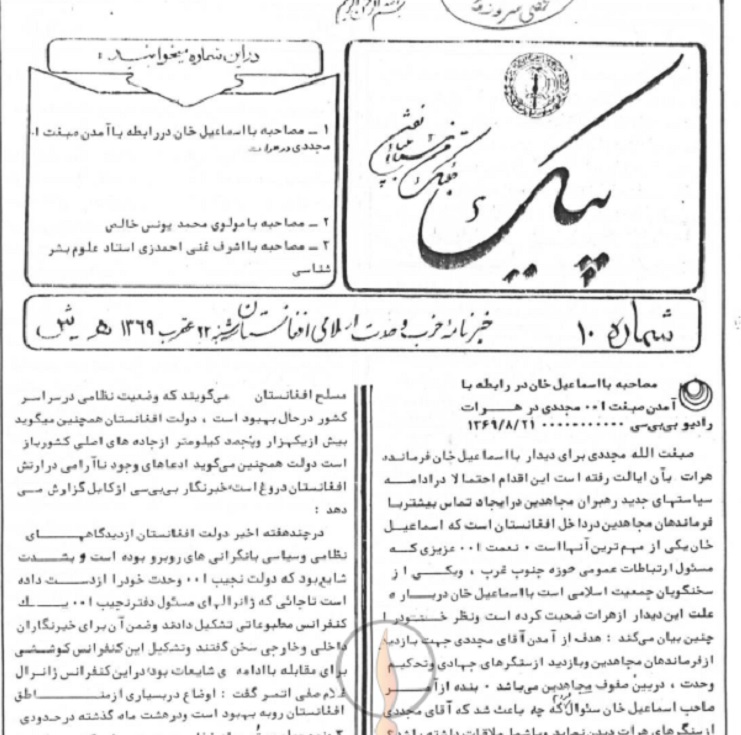 بسم الله الرحمن الرحیم
پیک
دراین شماره میخوانید :
۱ ـ مصاحبه بااسماعیل خان دررابطه باآمدن صبغت ا..
مجددی درهرات
۲ ـ مصاحبه بامولوی محمد یونس خالص
۳ ـ مصاحبه بااشرف غنی احمدزی استاد علوم بشر
شناسی
شماره ۱۰
خبرنامهٔ حزب وحدت اسلامی افغانستان
۲۲ عقرب ۱۳۶۹ هـ ش
مصاحبه بااسماعیل خان در رابطه با
آمدن صبغت ا۰۰ مجددی در هـــرات
رادیو بی‌بی‌سی ۰۰۰۰۰۰۰۰۰۰ ۱۳۶۹/۸/۲۱
صبغت الله مجددی برای دیدار بااسماعیل خان فرمانده
هرات بآن ایالت رفته است این اقدام احتمالا درادامـــه
سیاستهای جدید رهبران مجاهدین درایجاد تماس بیشتربـا
فرماندهان مجاهدین درداخل افغانستان است که اسماعیــل
خان یکی از مهم ترین آنهااست ۰ نعمت ا۰۰ عزیزی کــه
مسئول ارتباطات عمومی حوزه جنوب غرب ، ویکــی از
سخنگویان جمعیت اسلامی است بااسماعیل خان دربــاره
علت این دیدار ازهرات صحبت کرده است ونظر خـــودرا
چنین بیان میکند : هدف از آمدن آقای مجددی جهت بازدید
ازفرماندهان مجاهدین وبازدید ازسنگرهای جهادی وتحکیــم
وحدت ، دربین صفوف مجاهدین می‌باشد ۰ بنده ازآمـــر
صاحب اسماعیل خان سئوال کردم که چه باعث شد که آقای مجددی
ازسنگرهای هرات دیدن نماید وباشما ملاقات داشته باشد ؟
مسلح افغانستان میگویند که وضعیت نظامی درسراسر
کشور درحال بهبود است ، دولت افغانستان همچنین میگوید
بیش ازیکهزار وپنجصد کیلومتر ازجاده های اصلی کشورباز
است دولت همچنین می‌گوید ادعاهای وجود ناآرامی درارتش
افغانستان دروغ است خبرنگار بی‌بی‌سی ازکابل گزارش مــی
دهد :
درچندهفته اخیر دولت افغانستان ازدیدگاهـــــای
نظامی وسیاسی بانگرانی های روبرو بوده است و بشـــدت
شایع بود که دولت نجیب ا۰۰ وحدت خودرا ازدســـت داده
است تاجائی که ژانرالهای مسئول دفترنجیب ا۰۰ یــــک
کنفرانس مطبوعاتی تشکیل دادند وضمن آن برای خبرنگاران
داخلی وخارجی سخن گفتند وتشکیل این کنفرانس کوششــی
برای مقابله باادامه ی شایعات بود دراین کنفرانس ژانرال
غلام صفی اتمر گفت : اوضاع دربسیاری ازمنــــاطق
افغانستان روبه بهبود است ودرهشت ماه گذشته درحدودی